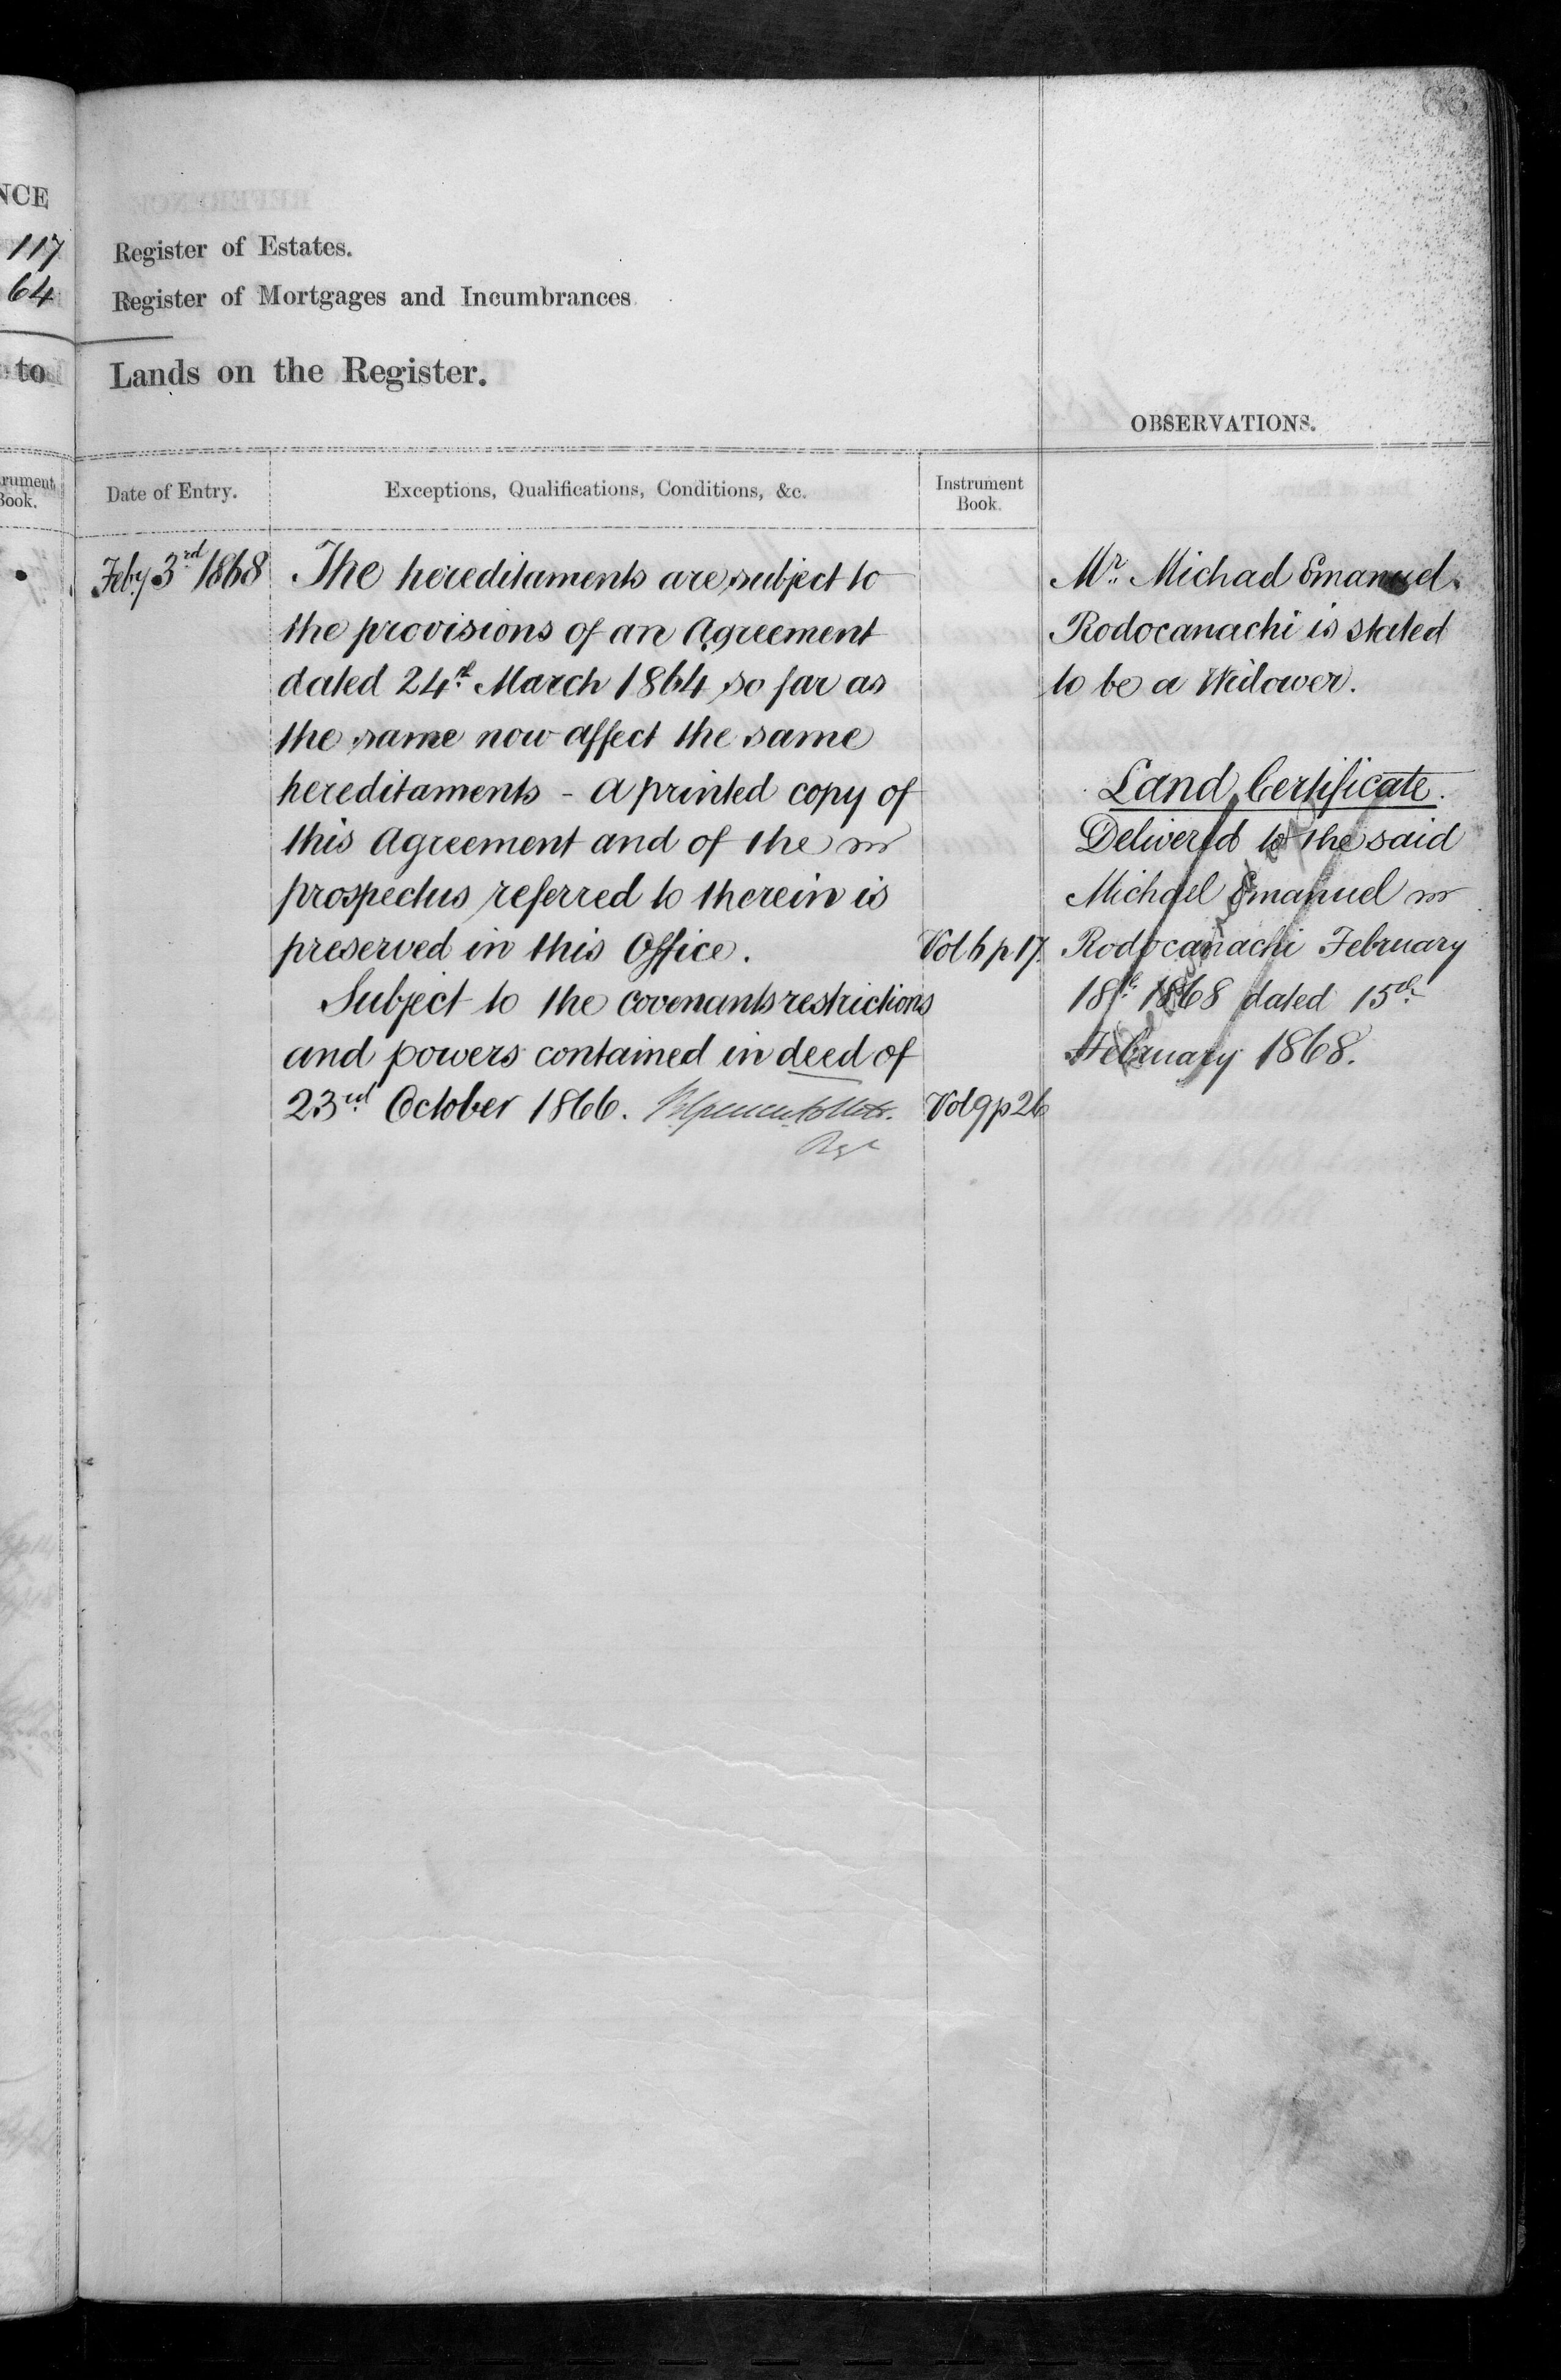 66
NCE
117
64
to
trument
Book.
Register of Estates.
Register of Mortgages and Incumbrances
Lands on the Register.
OBSERVATIONS.
Date of Entry.
Exceptions, Qualifications, Conditions, &c.
Instrument
Book.
Feby 3rd 1868
The hereditaments are subject to
the provisions of an Agreement
dated 24th March 1864 so far as
the same now affect the same
hereditaments - A printed copy of
this Agreement and of the
prospectus referred to therein is
preserved in this Office.
Vol 6 p 17.
Subject to the covenants restrictions
and powers contained in deed of
23rd October 1866.
Regr
Vol 9 p 26
Mr. Michael Emanuel
Rodocanachi is stated
to be a Widower.
Land Certificate.
Delivered to the said
Michael Emanuel
Rodocanachi February
18th 1868 dated 15th
February 1868.